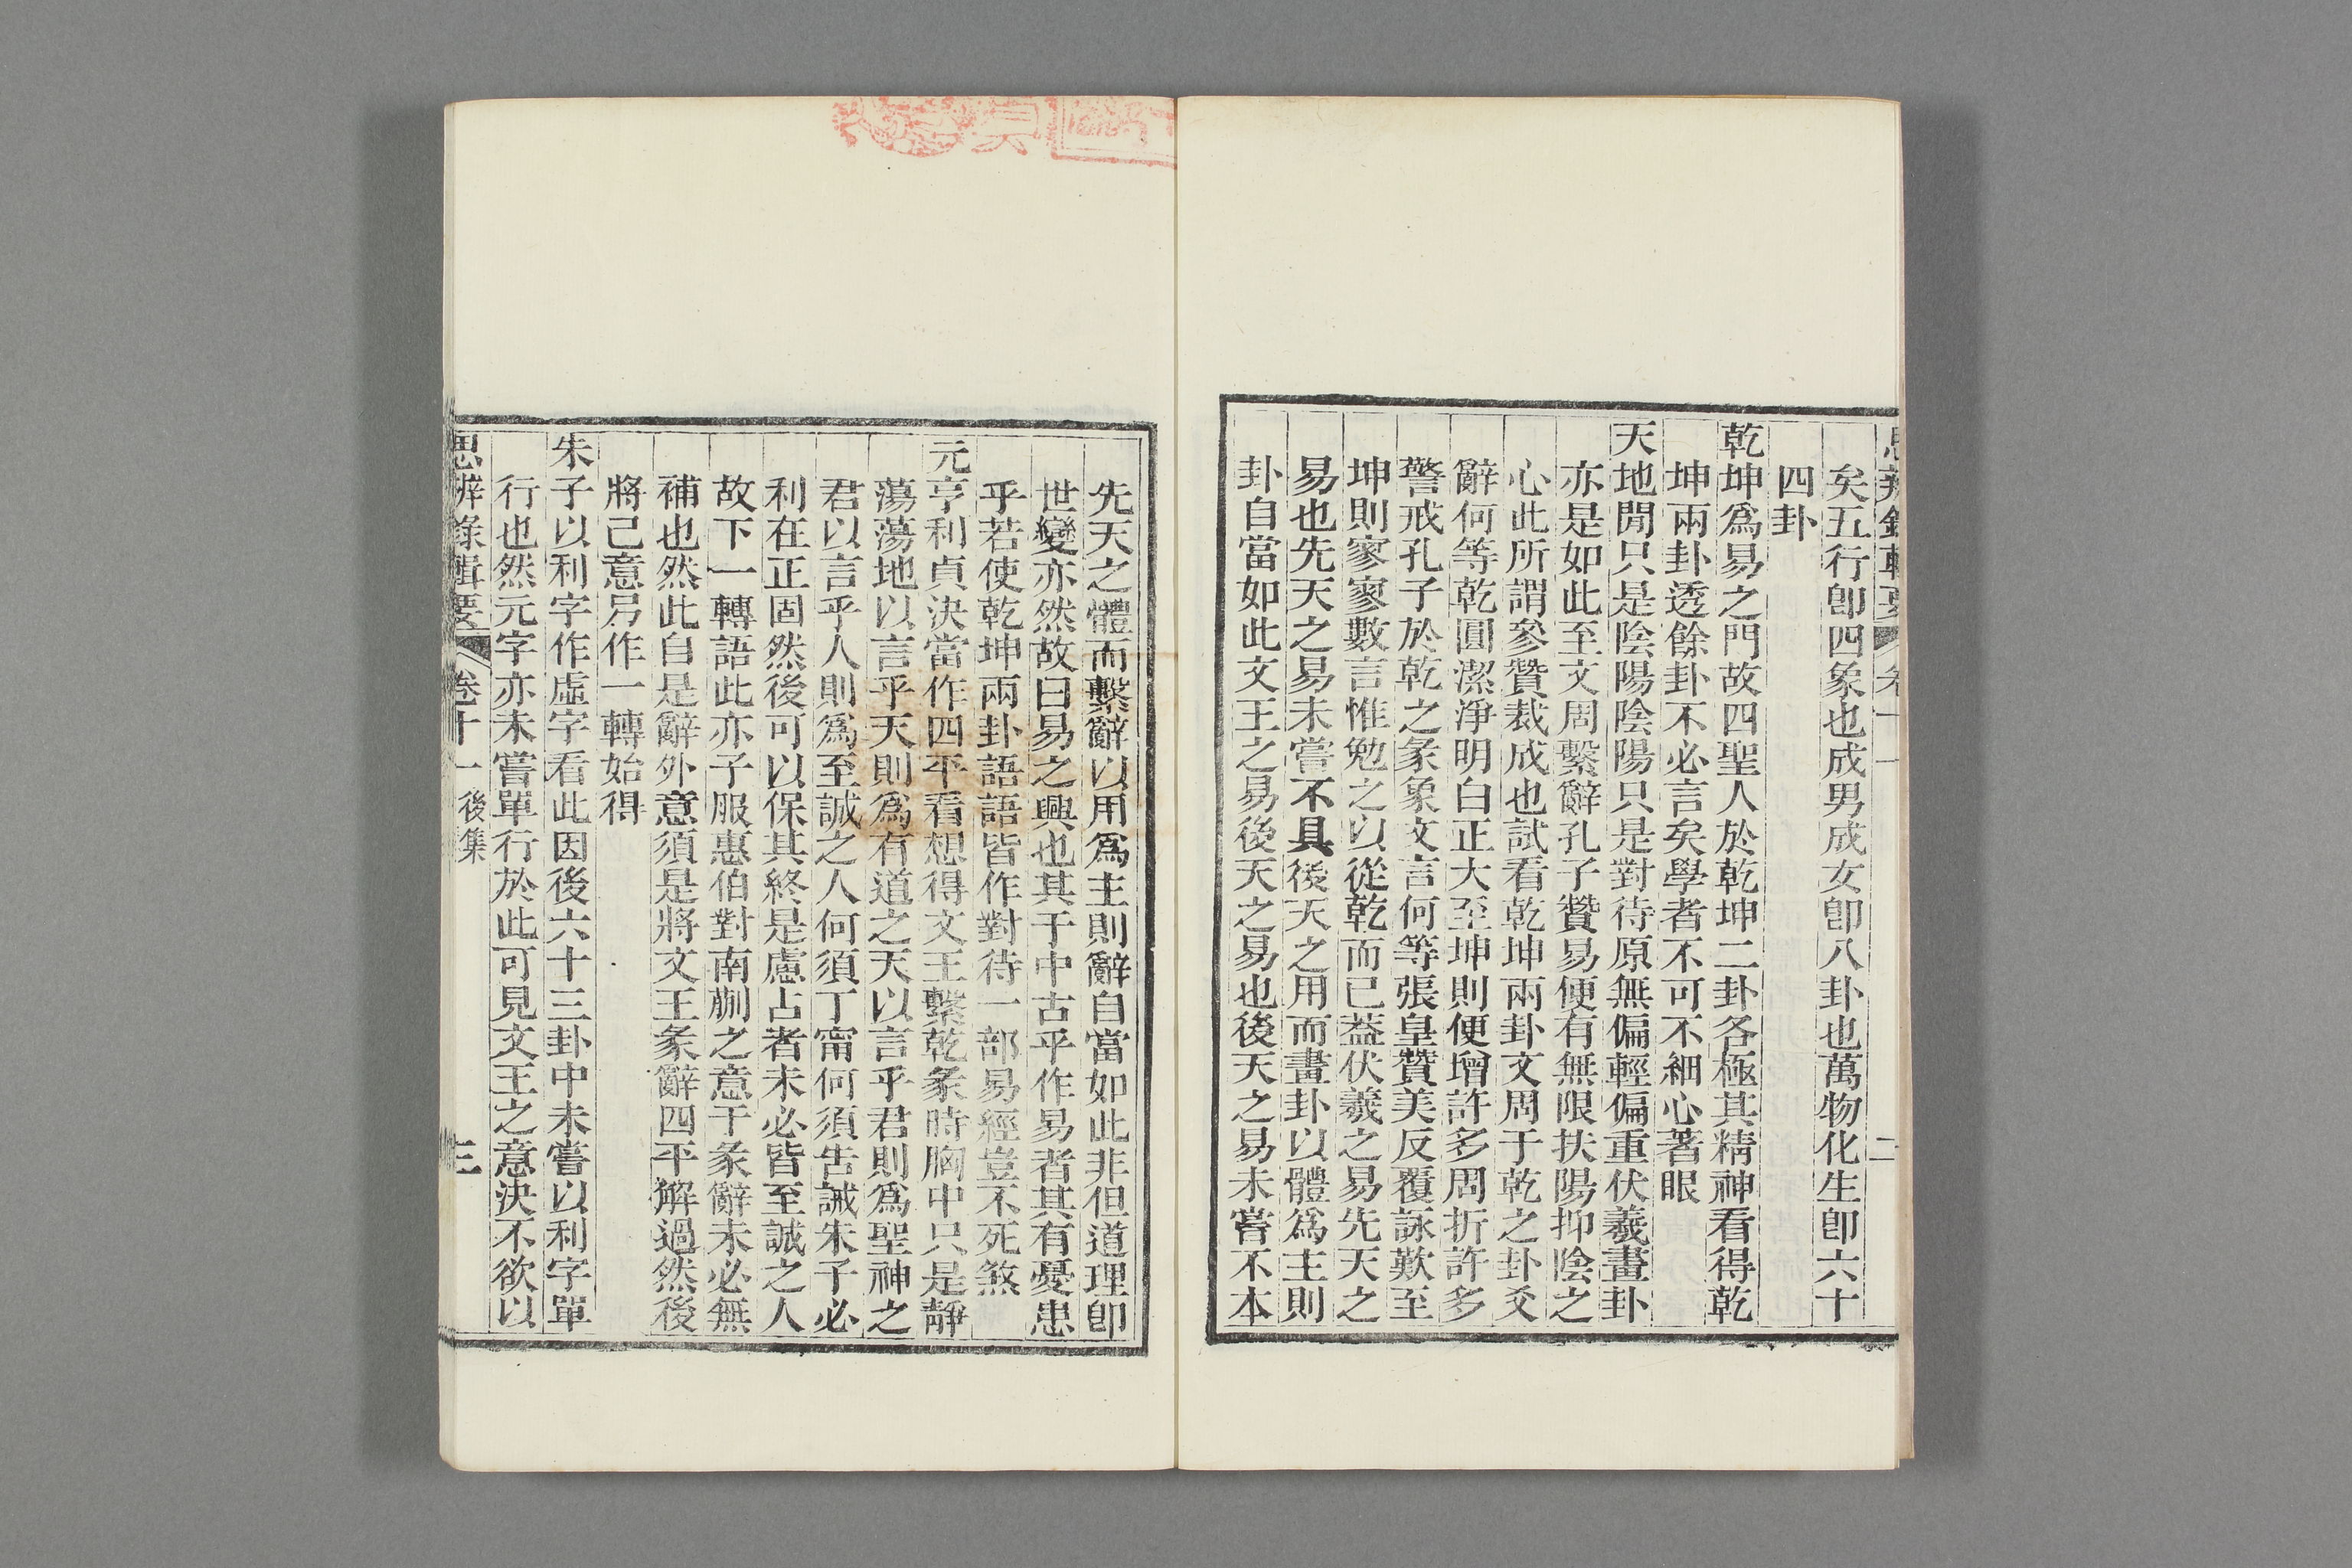 思辨錄輯要 卷十一 二
矣五行卽四象也成男成女卽八卦也萬物化生卽六十
四卦
乾坤爲易之門故四聖人於乾坤二卦各極其精神看得乾
坤兩卦透餘卦不必言矣學者不可不細心著眼
天地閒只是陰陽陰陽只是對待原無偏輕偏重伏羲畫卦
亦是如此至文周繫辭孔子贊易便有無限扶陽抑陰之
心此所謂參贊裁成也試看乾坤兩卦文周于乾之卦爻
辭何等乾圓潔淨明白正大至坤則便增許多周折許多
警戒孔子於乾之彖象文言何等張皇贊美反覆詠歎至
坤則寥寥數言惟勉之以從乾而已葢伏羲之易先天之
易也先天之易未嘗不具後天之用而畫卦以體爲主則
卦自當如此文王之易後天之易也後天之易未嘗不本
先天之體而繫辭以用爲主則辭自當如此非但道理卽
世變亦然故曰易之興也其于中古乎作易者其有憂患
乎若使乾坤兩卦語語皆作對待一部易經豈不死煞
元亨利貞決當作四平看想得文王繫乾彖時胸中只是靜
蕩蕩地以言乎天則爲有道之天以言乎君則爲聖神之
君以言乎人則爲至誠之人何須丁甯何須告誡朱子必
利在正固然後可以保其終是慮占者未必皆至誠之人
故下一轉語此亦子服惠伯對南蒯之意于彖辭未必無
補也然此自是辭外意須是將文王彖辭四平解過然後
將己意另作一轉始得
朱子以利字作虛字看此因後六十三卦中未嘗以利字單
行也然元字亦未嘗單行於此可見文王之意決不欲以
思辨錄輯要 卷十一 後集 三